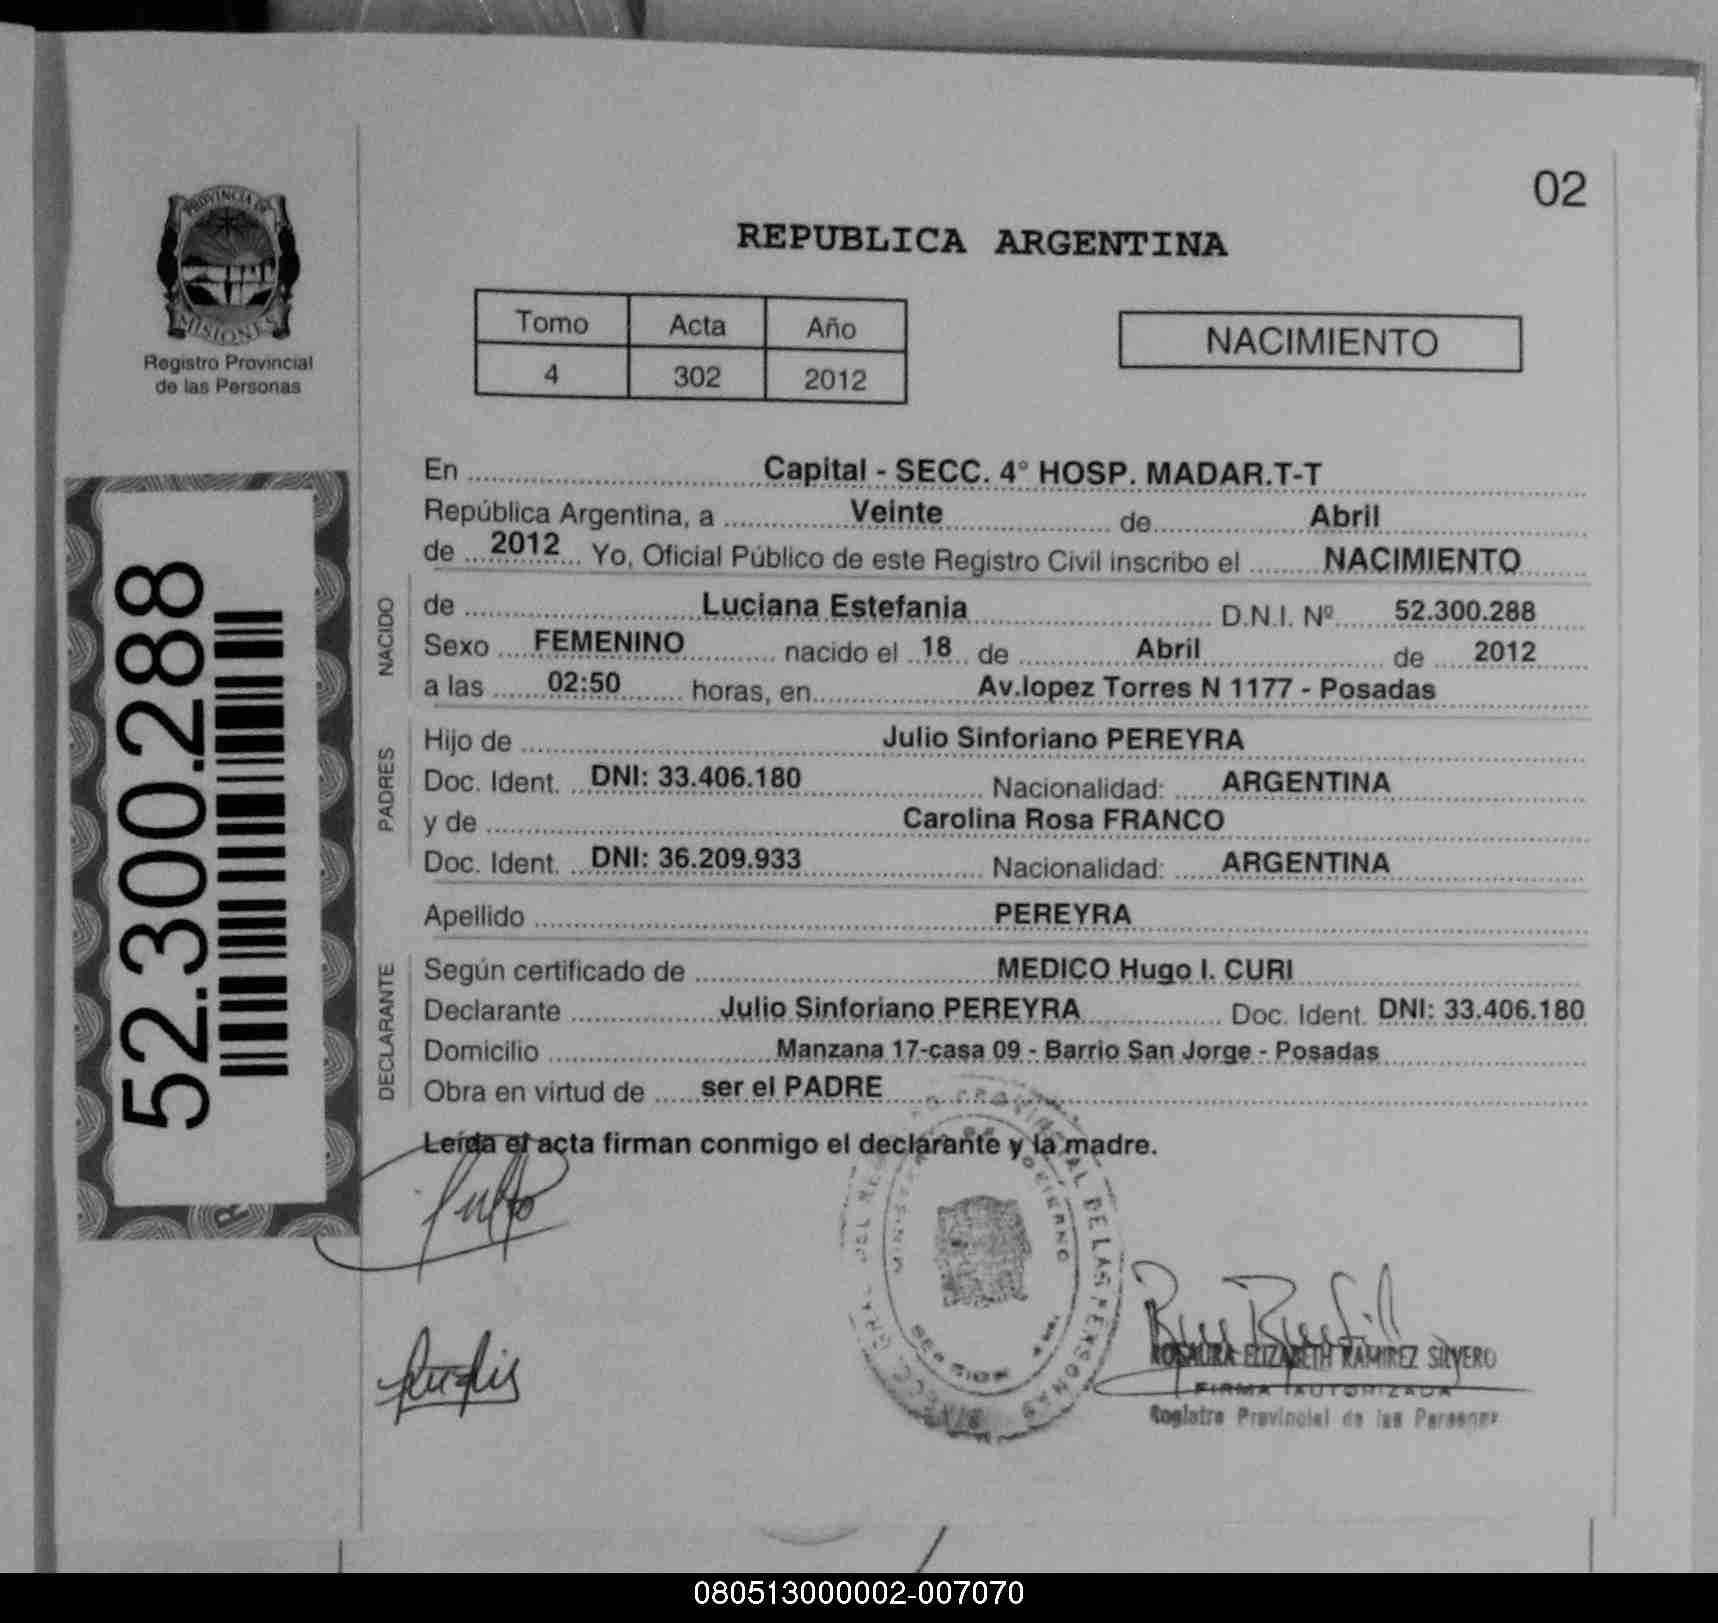 02
PROVINCIA DE
MISIONES
Registro Provincial
de las Personas
REPUBLICA ARGENTINA
Tomo Acta Año
4 302 2012
NACIMIENTO
52.300.288
En Capital - SECC. 4° HOSP. MADAR.T-T
República Argentina, a Veinte de Abril
de 2012 Yo, Oficial Público de este Registro Civil inscribo el NACIMIENTO
NACIDO
de Luciana Estefania D.N.I. Nº 52.300.288
Sexo FEMENINO nacido el 18 de Abril de 2012
a las 02:50 horas, en Av.lopez Torres N 1177 - Posadas
PADRES
Hijo de Julio Sinforiano PEREYRA
Doc. Ident. DNI: 33.406.180 Nacionalidad: ARGENTINA
y de Carolina Rosa FRANCO
Doc. Ident. DNI: 36.209.933 Nacionalidad: ARGENTINA
Apellido PEREYRA
DECLARANTE
Según certificado de MEDICO Hugo I. CURI
Declarante Julio Sinforiano PEREYRA Doc. Ident. DNI: 33.406.180
Domicilio Manzana 17-casa 09 - Barrio San Jorge - Posadas
Obra en virtud de ser el PADRE
Leída el acta firman conmigo el declarante y la madre.
PROVINCIAL DE LAS PERSONAS
GOBIERNO
ROSAURA ELIZABETH RAMIREZ SILVERO
FIRMA AUTORIZADA
Registro Provincial de las Personas
080513000002-007070